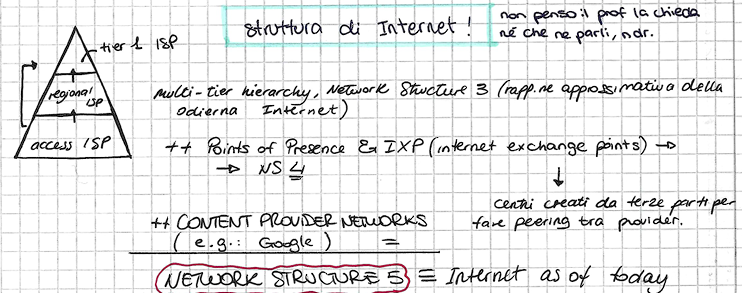 struttura di Internet !
non penso il prof la chieda
né che ne parli, ndr.
tier 1 ISP
regional
ISP
access ISP
multi-tier hierarchy, Network Structure 3 (rapp.ne approssimativa della
odierna Internet)
++ Points of Presence & IXP (internet exchange points) →
→ NS 4
↓
centri creati da terze parti per
fare peering tra provider.
++ CONTENT PROVIDER NETWORKS
(e.g.: Google) =
NETWORK STRUCTURE 5 ≡ Internet as of today